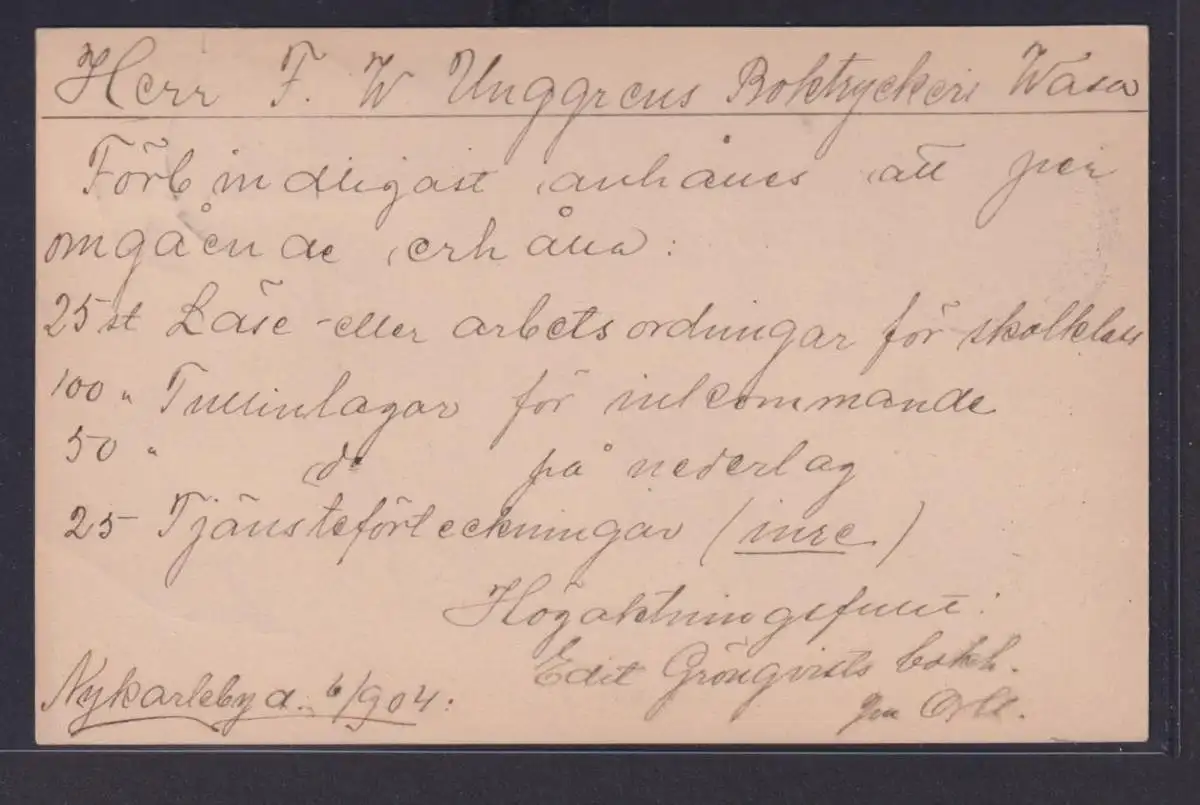 Herr F. W Unggrens Boktryckeri Wasa
Förbindligast anhålles att per
omgående erhålla:
25 st Läse- eller arbetsordningar för skolklass
100 " Tullinlagor för inkommande
50 " do på nederlag
25 Tjänsteförteckningar (inre)
Högaktningsfullt:
Edit Grönqvists bokh.
Nykarleby d. 6/904: